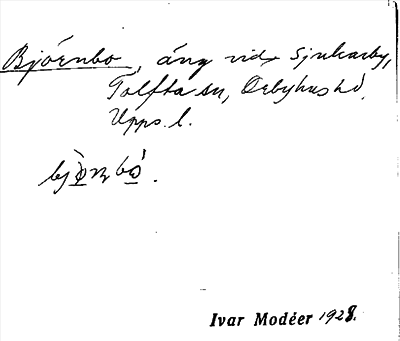 Björnbo, äng vid Sjukarby,
Tolfta sn, Örbyhus hd,
Upps. l.
Ivar Modéer 1928.